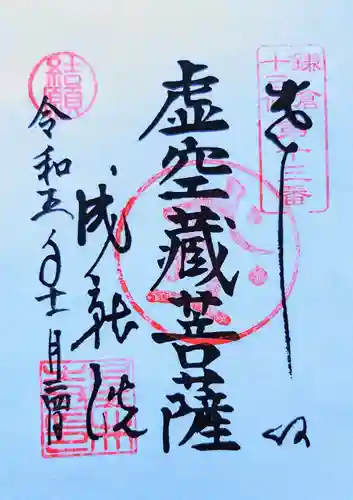 奉拝
鎌倉第十三番
虚空蔵菩薩
成就院
令和五年十一月二四日
結願